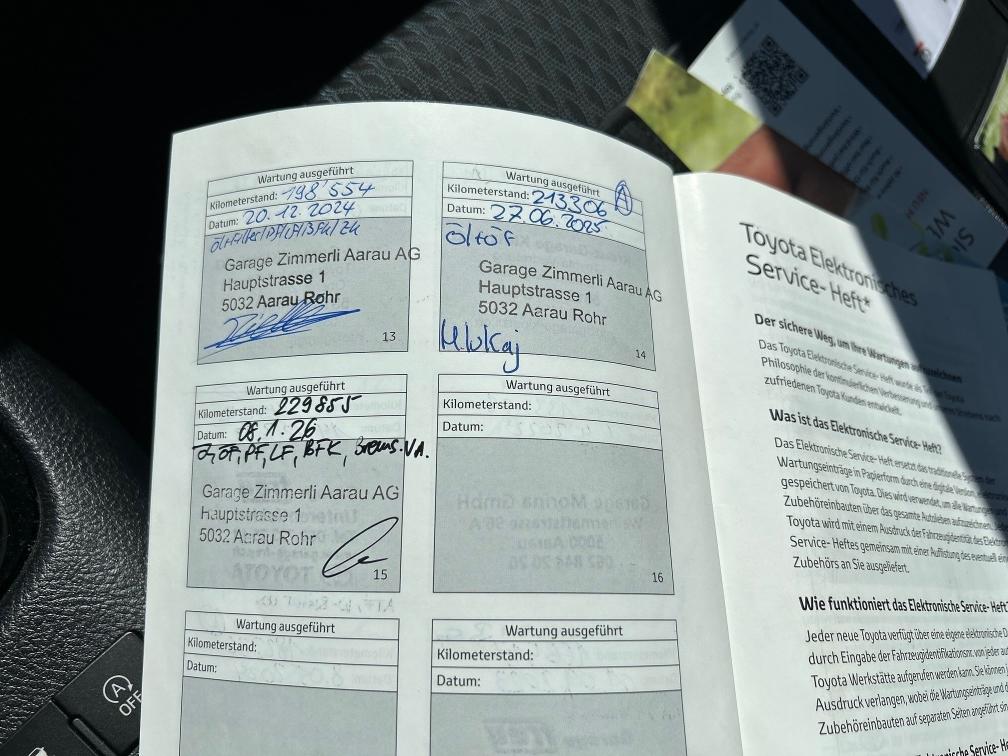 Wartung ausgeführt
Kilometerstand: 198'554
Datum: 20.12.2024
Garage Zimmerli Aarau AG
Hauptstrasse 1
5032 Aarau Rohr
13
Wartung ausgeführt
Kilometerstand: 213306 A
Datum: 27.06.2025
Öl+ÖF
Garage Zimmerli Aarau AG
Hauptstrasse 1
5032 Aarau Rohr
14
Wartung ausgeführt
Kilometerstand: 229855
Datum: 08.1.26
Ö, ÖF, PF, LF, BFK, Brems.VA.
Garage Zimmerli Aarau AG
Hauptstrasse 1
5032 Aarau Rohr
15
Wartung ausgeführt
Kilometerstand:
Datum:
16
Wartung ausgeführt
Kilometerstand:
Datum:
Wartung ausgeführt
Kilometerstand:
Datum:
Toyota Elektronisches
Service- Heft*
Der sichere Weg, um Ihre Wartungen aufzuzeichnen
Das Toyota Elektronische Service- Heft wurde als Toyota
Philosophie der kontinuierlichen Verbesserung und
zufriedenen Toyota Kunden entwickelt.
Was ist das Elektronische Service- Heft?
Das Elektronische Service- Heft ersetzt das traditionelle System der
Wartungseinträge in Papierform durch eine digitale Version,
gespeichert von Toyota. Dies wird verwendet, um alle Wartungen
Zubehöreinbauten über das gesamte Autoleben aufzuzeichnen.
Toyota wird mit einem Ausdruck der Fahrzeugidentität des
Service- Heftes gemeinsam mit einer Auflistung des eventuell
Zubehörs an Sie ausgeliefert.
Wie funktioniert das Elektronische Service- Heft?
Jeder neue Toyota verfügt über eine eigene elektronische
durch Eingabe der Fahrzeugidentifikationsnr. von jeder
Toyota Werkstätte aufgerufen werden kann. Sie können
Ausdruck verlangen, wobei die Wartungseinträge und
Zubehöreinbauten auf separaten Seiten angeführt
A
OFF